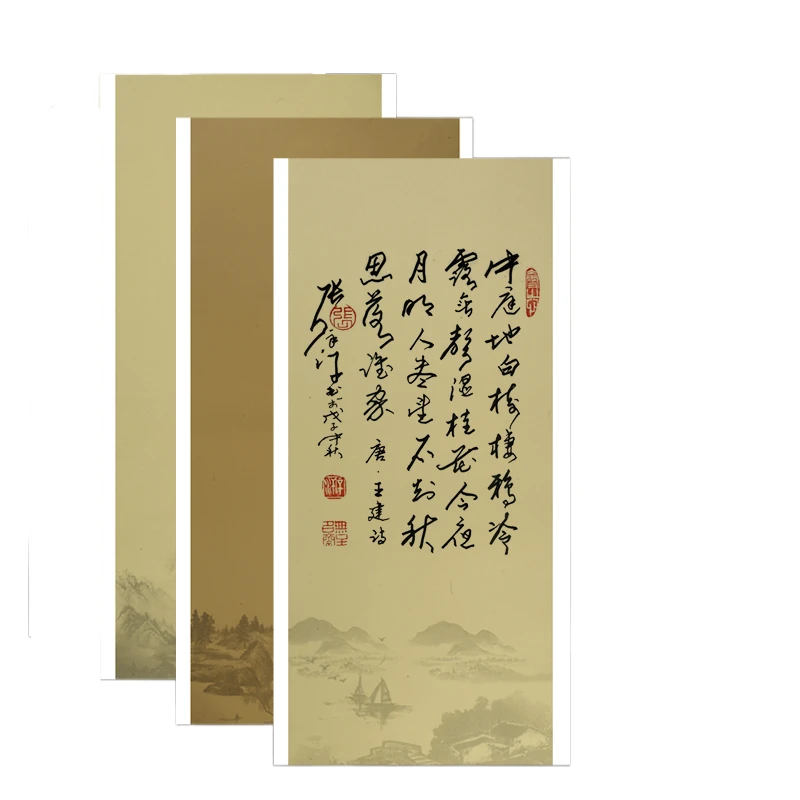 中庭地白树棲鸦冷
露无声湿桂花今夜
月明人尽望不知秋
思落谁家 唐·王建诗
张 书于戊子中秋
張